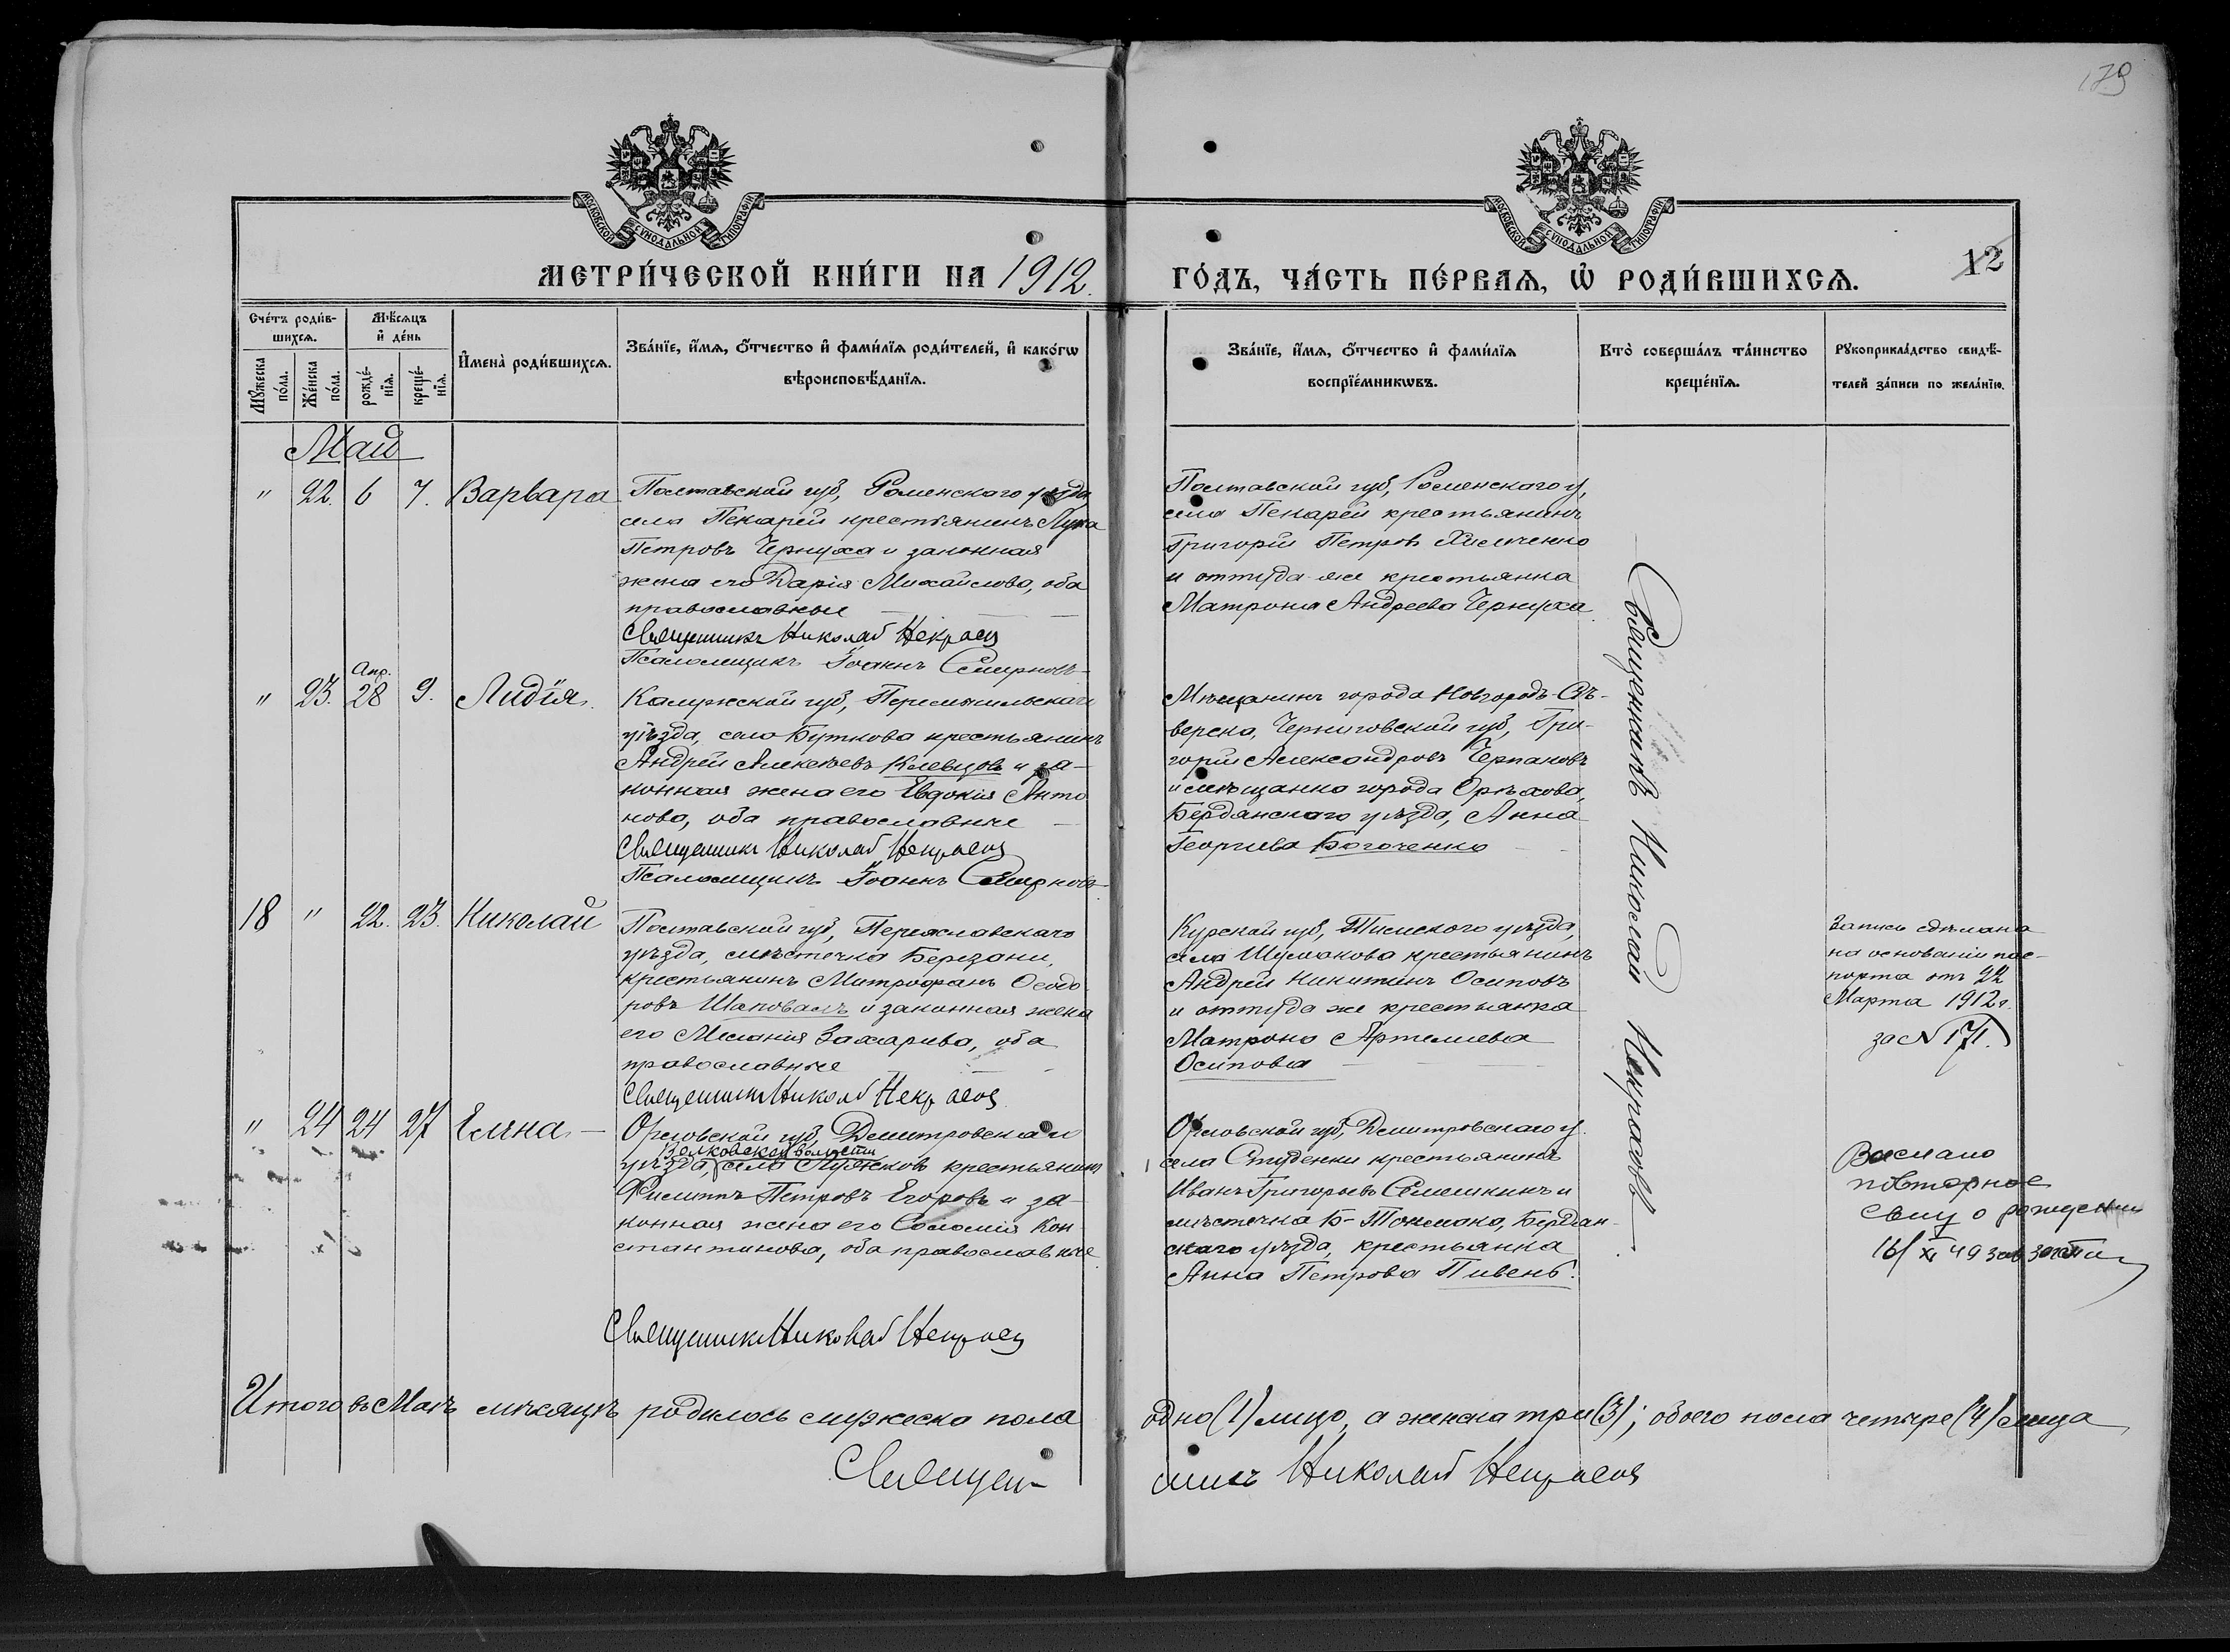 179
МОСКОВСКОЙ СѴНОДАЛЬНОЙ ТИПОГРАФІИ
МОСКОВСКОЙ СѴНОДАЛЬНОЙ ТИПОГРАФІИ
МЕТРИ́ЧЕСКОЙ КНИ́ГИ НА 1912.
ГО́ДЪ, ЧА́СТЬ ПЕ́РВАѦ, Ѡ҆ РОДИ́ВШИХСѦ.
12
Сче́тъ роди́в-
шихсѧ.
Мѣ́сѧцъ
и҆ де́нь
Мꙋ́жеска
по́ла.
Же́нска
по́ла.
рожде́-
нїѧ.
креще́-
нїѧ.
И҆мена̀ роди́вшихсѧ.
Зва́нїе, и҆́мѧ, ѻ҆́тчество и҆ фами́лїѧ роди́телей, и҆ како́гѡ
вѣроисповѣ́данїѧ.
Зва́нїе, и҆́мѧ, ѻ҆́тчество и҆ фами́лїѧ
воспрїе́мникѡвъ.
Кто̀ соверша́лъ та́инство
креще́нїѧ.
Рꙋкоприкла́дство свидѣ́-
телей за́писи по жела́нїю.
Май
" 22. 6 7. Варвара
Полтавской губ, Роменскаго уѣзда
села Пекарей крестьянинъ Лука
Петровъ Чернуха и законная
жена его Дарія Михайлова, оба
православные
Священникъ Николай Некрасов
Псаломщикъ Іоаннъ Смирновъ
Полтавской губ, Роменскаго у,
села Пекарей крестьянинъ
Григорій Петров Хильченко
и оттуда же крестьянка
Матрона Андреева Чернуха
" 23. Апр. 28 9. Лидія.
Калужской губ, Перемышльскаго
уѣзда, села Буткова крестьянинъ
Андрей Алексѣевъ Клевцовъ и за-
конная жена его Евдокія Анто
нова, оба православные
Священник Николай Некрасов
Псаломщикъ Іоаннъ Смирновъ
Мѣщанинъ города Новгородъ-Сѣ-
верска, Черниговской губ, Гри-
горій Александровъ Черпаковъ
и мѣщанка города Орѣхова,
Бердянскаго уѣзда, Анна
Георгиева Богоченко
18 " 22. 23. Николай
Полтавской губ, Переяславскаго
уѣзда, мѣстечка Березани,
крестьянинъ Митрофанъ Ѳеодо
ровъ Шаповалъ и законная жена
его Меланія Захарьева, оба
православные
Священникъ Николай Некрасов
Курской губ, Тимскаго уѣзда,
села Шумакова крестьянинъ
Андрей Никитинъ Осиповъ
и оттуда же крестьянка
Матрона Артемьева
Осипова
Запись сдѣлана
на основаніи пас-
порта отъ 22
Марта 1912 г.
за № 171.
" 24 24 27 Елена
Орловской губ, Дмитровскаго
Волковской волости
уѣзда, села Лубянковъ крестьянинъ
Филиппъ Петровъ Егоровъ и за-
конная жена его Соломія Кон
стантинова, оба православные
Священникъ Николай Некрасов
Орловской губ, Дмитровскаго у.
села Студенки крестьянинъ
Иванъ Григорьевъ Семешкинъ и
мѣстечка Б-Токмака, Бердян-
скаго уѣзда, крестьянка
Анна Петрова Пивень.
Выслано
повторное
свид о рождении
16/XI 49
Священникъ Николай Некрасовъ
Итого въ Маѣ мѣсяцѣ родилось мужеска пола одно (1) лицо, а женска три (3); обоего пола четыре (4) лица
Священ- никъ Николай Некрасов